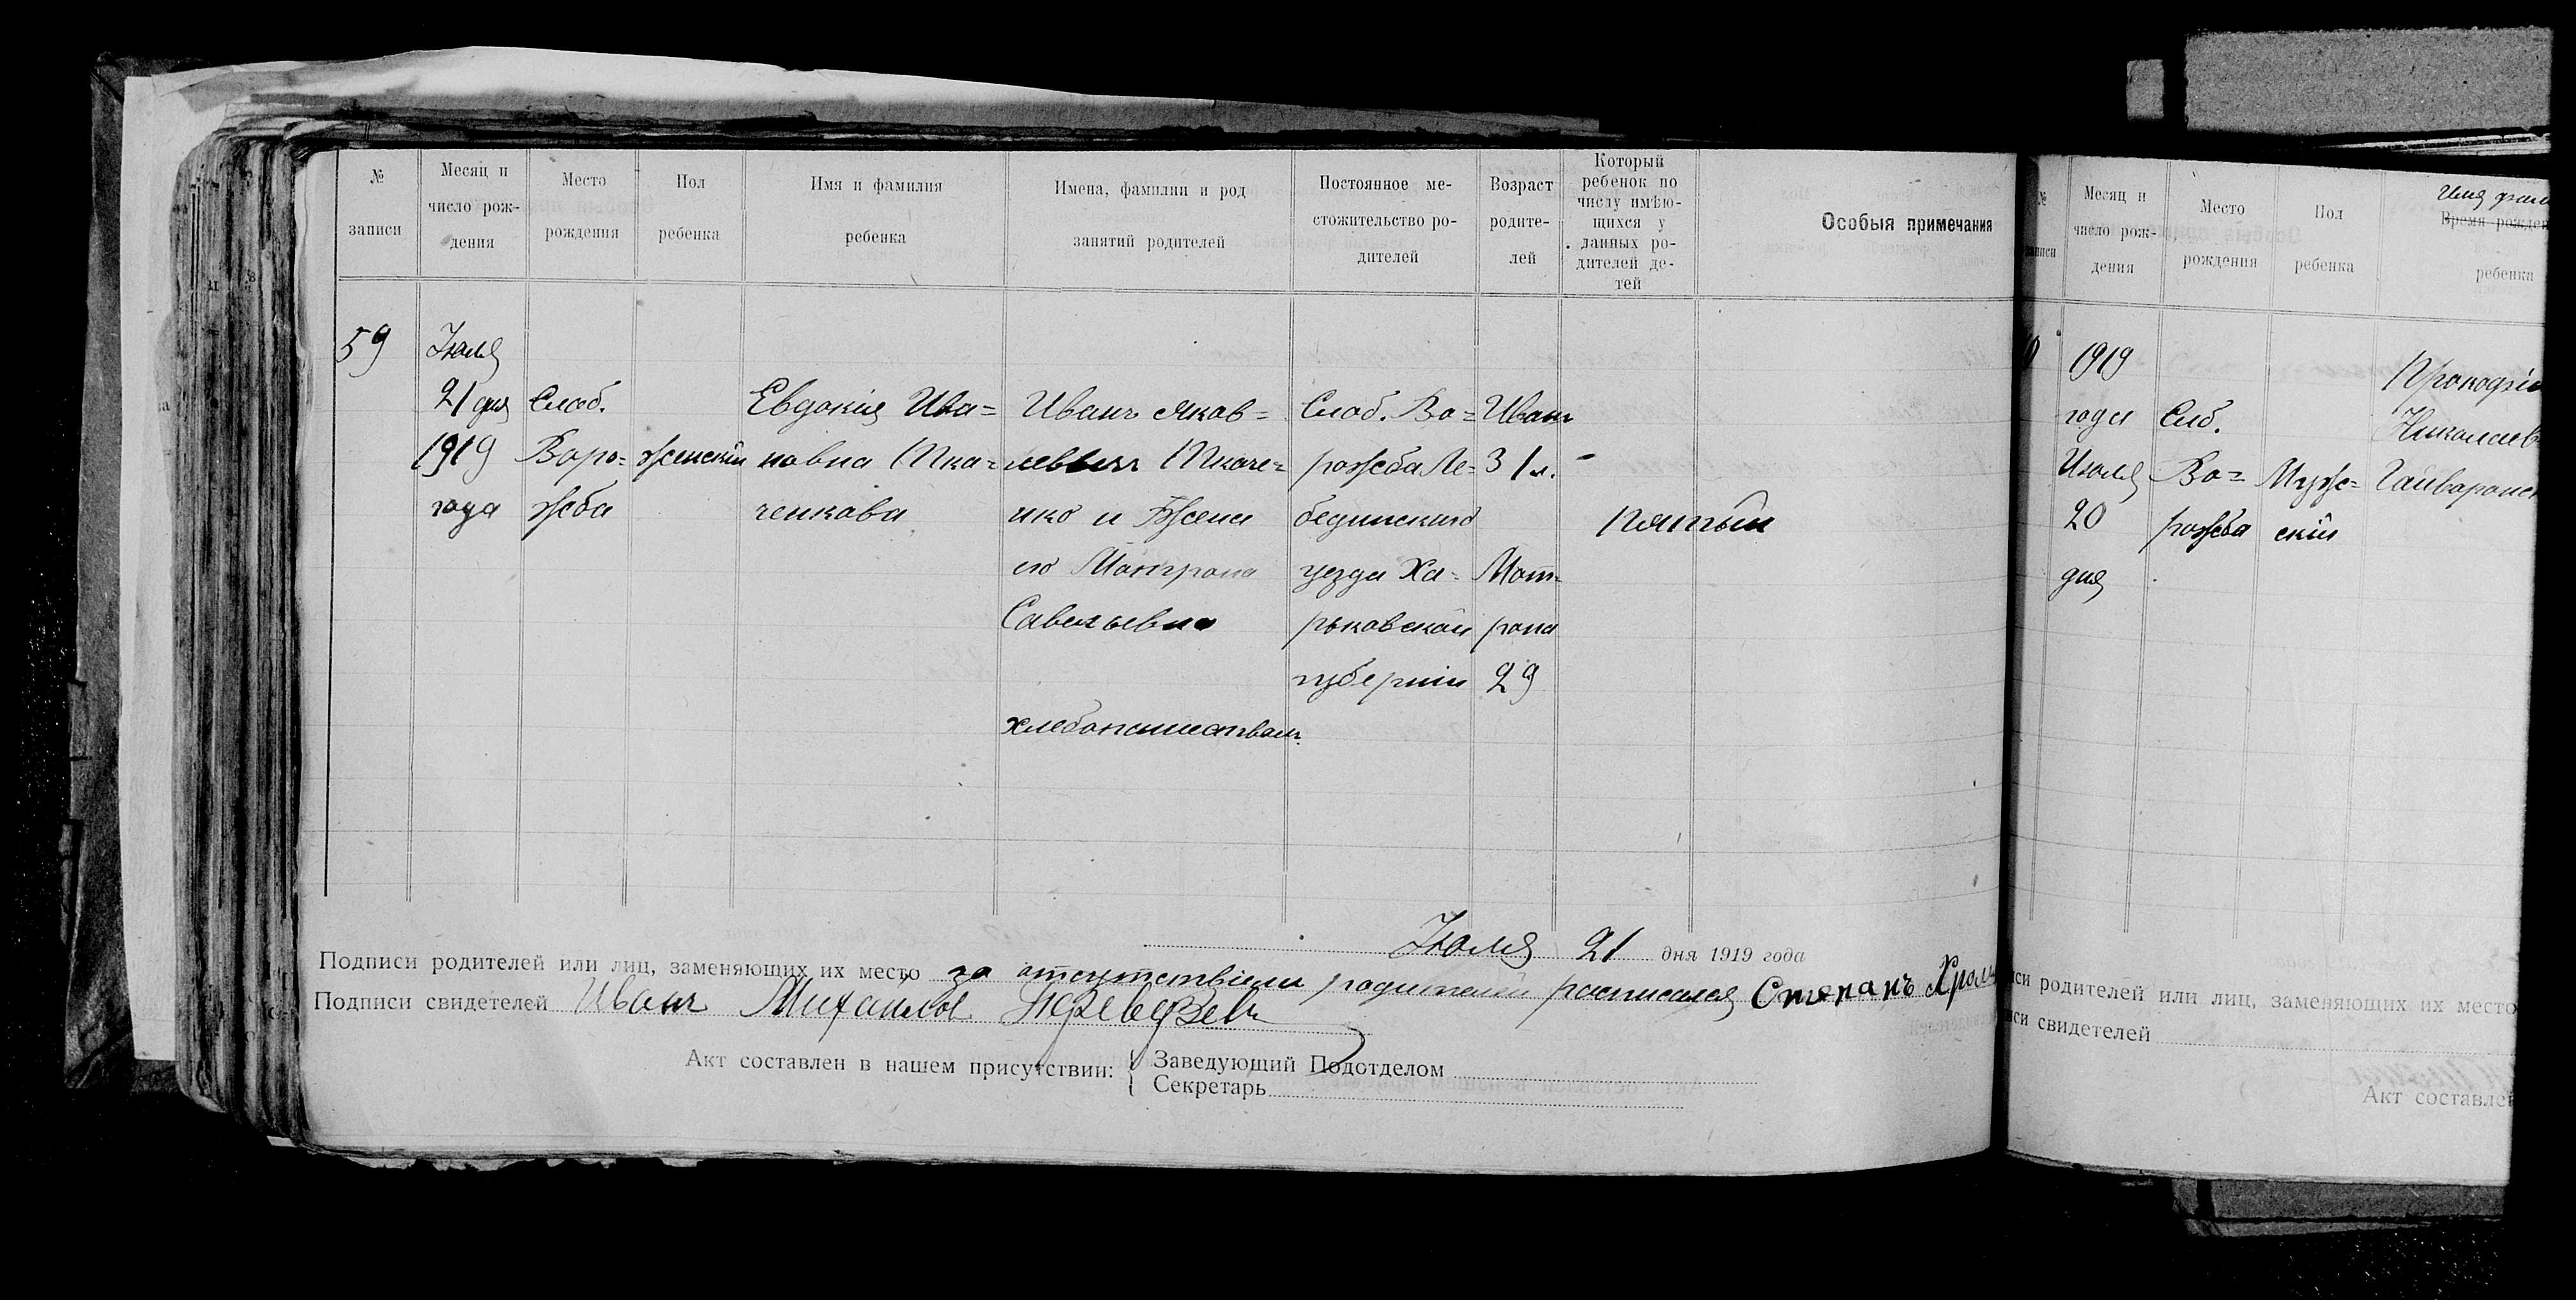 № записи
Месяц и число рождения
Место рождения
Пол ребенка
Имя и фамилия ребенка
Имена, фамилии и род занятий родителей
Постоянное местожительство родителей
Возраст родителей
Который ребенок по числу имѣющихся у данных родителей детей
Особыя примечания
59
Июля
21 дня
1919
года
Слоб.
Воро=
жба
женскій
Евдокія Ива=
новна Тка=
ченкова
Иванъ Яков=
левичъ Ткаче=
нко и Жена
его Матрона
Савельевна
хлебопашеством
Слоб. Во=
рожба Ле=
бединскаго
уезда Ха=
рьковской
губерніи
Иванъ
31 л.
Мат=
рона
29
пятый
Июля 21 дня 1919 года
Подписи родителей или лиц, заменяющих их место за отсутствіем родителей росписался Степанъ
Подписи свидетелей Иванъ Михаилов
Акт составлен в нашем присутствии:
Заведующий Подотделом
Секретарь
Месяц и число рождения
Место рождения
Пол ребенка
Имя
ребенка
1919
года
Июля
20
дня
Слб.
Во=
рожба
Муж=
скій
родителей или лиц, заменяющих их место
свидетелей
Акт